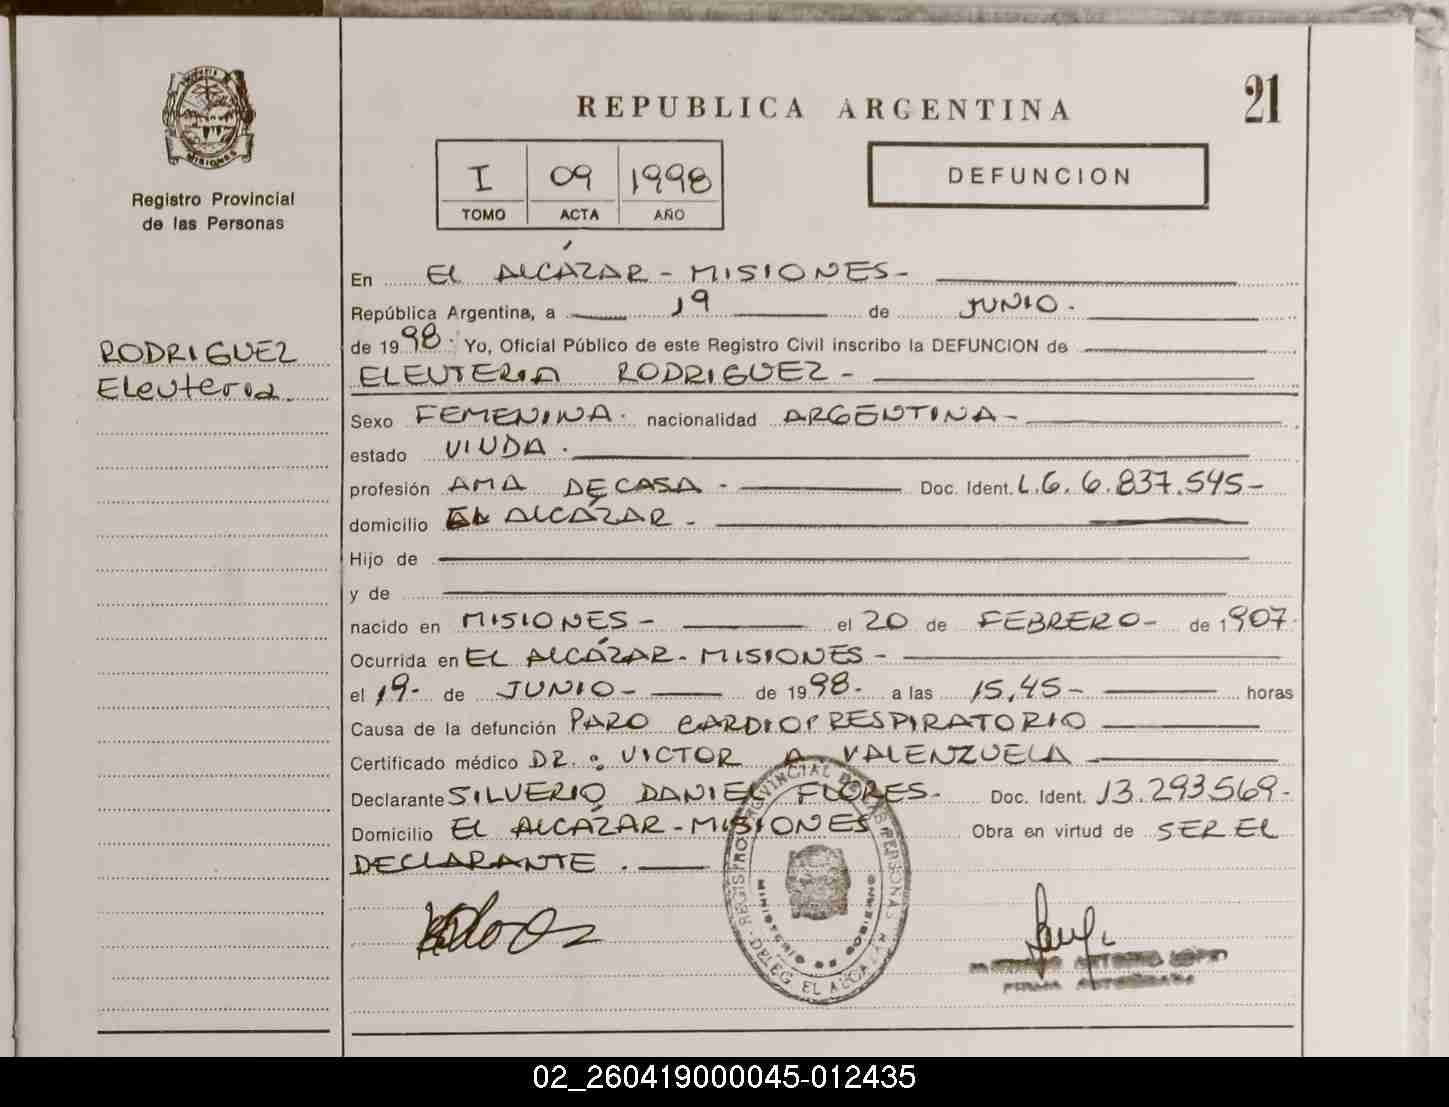 MISIONES
Registro Provincial
de las Personas
RODRIGUEZ
Eleuteria.
REPUBLICA ARGENTINA
21
I 09 1998
TOMO ACTA AÑO
DEFUNCION
En EL ALCÁZAR - MISIONES -
República Argentina, a 19 de JUNIO.
de 1998. Yo, Oficial Público de este Registro Civil inscribo la DEFUNCION de
ELEUTERIA RODRIGUEZ -
Sexo FEMENINA. nacionalidad ARGENTINA -
estado VIUDA.
profesión AMA DE CASA - Doc. Ident. L.C. 6.837.545-
domicilio EL ALCÁZAR -
Hijo de
y de
nacido en MISIONES - el 20 de FEBRERO - de 1907.
Ocurrida en EL ALCÁZAR - MISIONES -
el 19- de JUNIO - de 1998- a las 15,45- horas
Causa de la defunción PARO CARDIORRESPIRATORIO
Certificado médico DR: VICTOR A VALENZUELA
Declarante SILVERIO DANIEL FLORES- Doc. Ident. 13.293.569-
Domicilio EL ALCÁZAR - MISIONES Obra en virtud de SER EL
DECLARANTE. -
REGISTRO PROVINCIAL DE LAS PERSONAS
MINISTERIO DE GOBIERNO
DELEG. EL ALCAZAR
ANTONIO LOPEZ
FIRMA AUTORIZADA
02_260419000045-012435